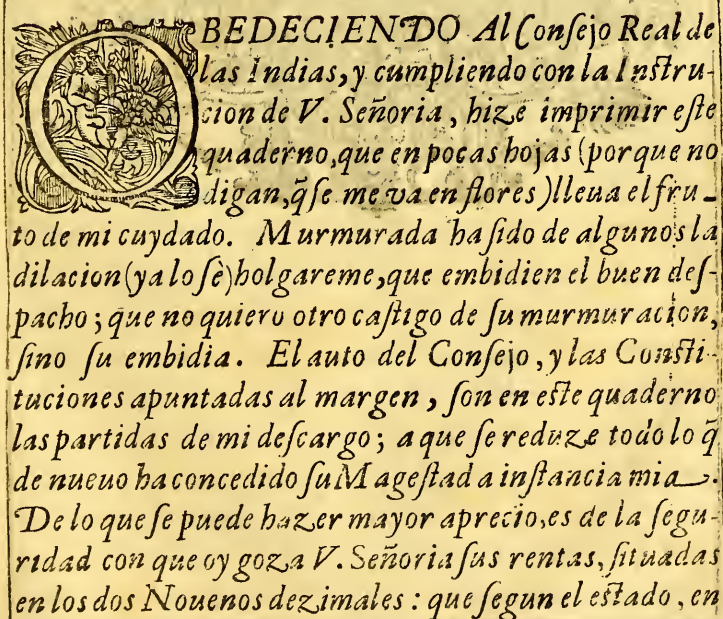 OBEDECIENDO Al Conſejo Real de
las Indias, y cumpliendo con la Inſtru-
cion de V. Señoria, hize imprimir eſte
quaderno, que en pocas hojas (porque no
digan, q̃ ſe me va en flores) lleua el fru-
to de mi cuydado. Murmurada ha ſido de algunos la
dilacion (ya lo ſè) holgareme, que embidien el buen deſ-
pacho; que no quiero otro caſtigo de ſu murmuracion,
ſino ſu embidia. El auto del Conſejo, y las Conſti-
tuciones apuntadas al margen, ſon en eſte quaderno
las partidas de mi deſcargo; a que ſe reduze todo lo q̃
de nueuo ha concedido ſu Mageſtad a inſtancia mia.
De lo que ſe puede hazer mayor aprecio, es de la ſegu-
ridad con que oy goza V. Señoria ſus rentas, ſituadas
en los dos Nouenos dezimales: que ſegun el eſtado, en